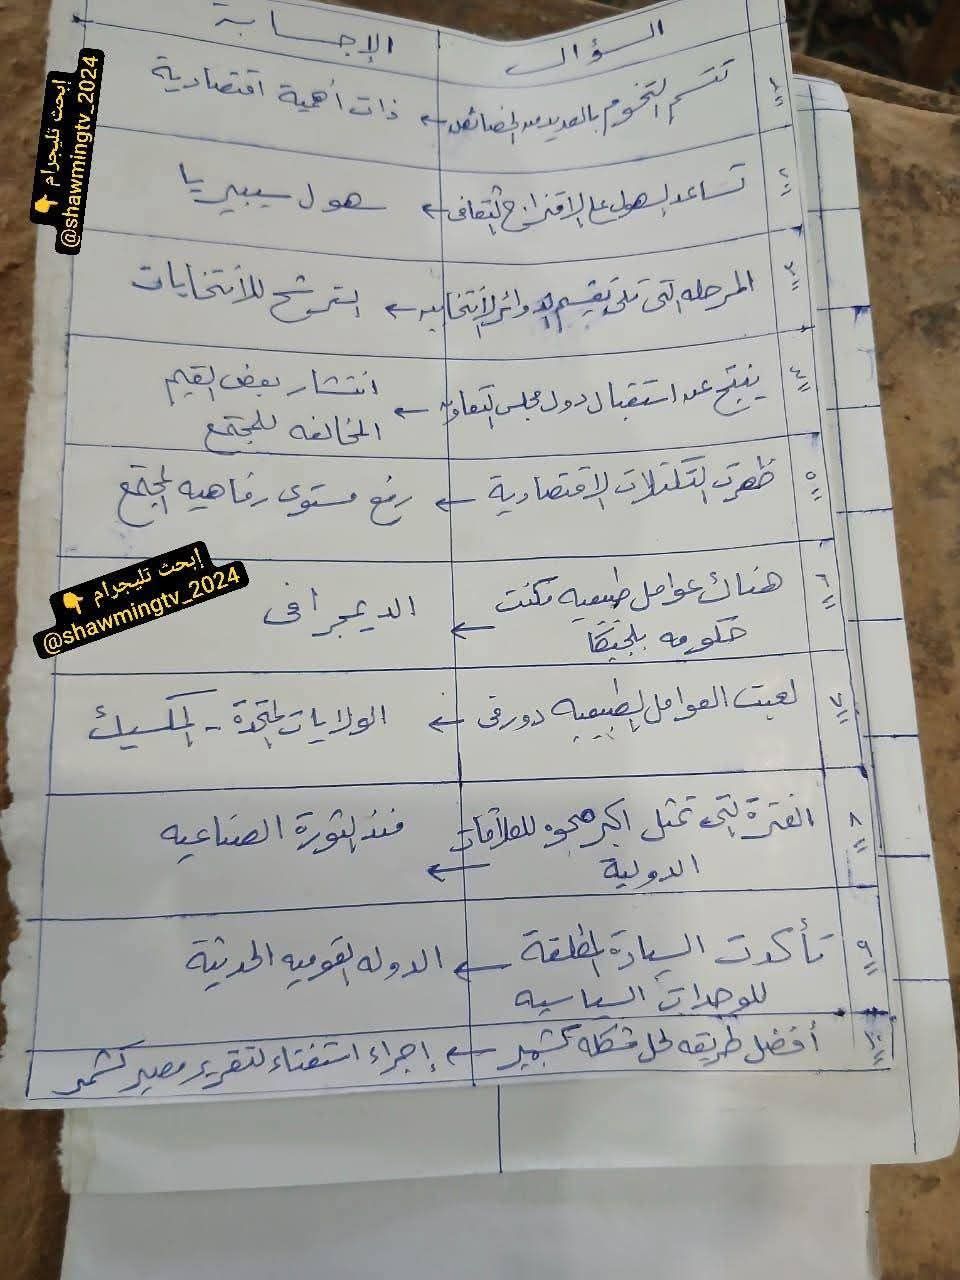 السؤال
الإجابة
١
تتسم التخوم بالعديد من الخصائص ← ذات أهمية اقتصادية
٢
تساعد السهول على الاقتراح الثقافى ← سهول سيبيريا
٣
المرحله التى تلى تقسيم الدوائر الأنتخابيه ← الترشح للأنتخابات
٤
ينتج عن استقبال دول مجلس التعاون ← انتشار بعض القيم
المخالفه للمجتمع
٥
ظهرت التكتلات الاقتصادية ← رفع مستوى رفاهيه المجتمع
٦
هناك عوامل طبيعيه مكنت
حكومه بلجيكا ← الديمجرافى
٧
لعبت العوامل الطبيعيه دور فى ← الولايات المتحدة - المكسيك
٨
الفترة التى تمثل اكبر للعلاقات
الدولية ← منذ الثورة الصناعيه
٩
تأكدت السيادة المطلقة ← الدوله القوميه الحديثة
للوحدات السياسيه
١٠
أفضل طريقه لحل مشكله كشمير ← إجراء استفتاء لتقرير مصير كشمير
إبحث تليجرام 👇
@shawmingtv_2024
إبحث تليجرام 👇
@shawmingtv_2024